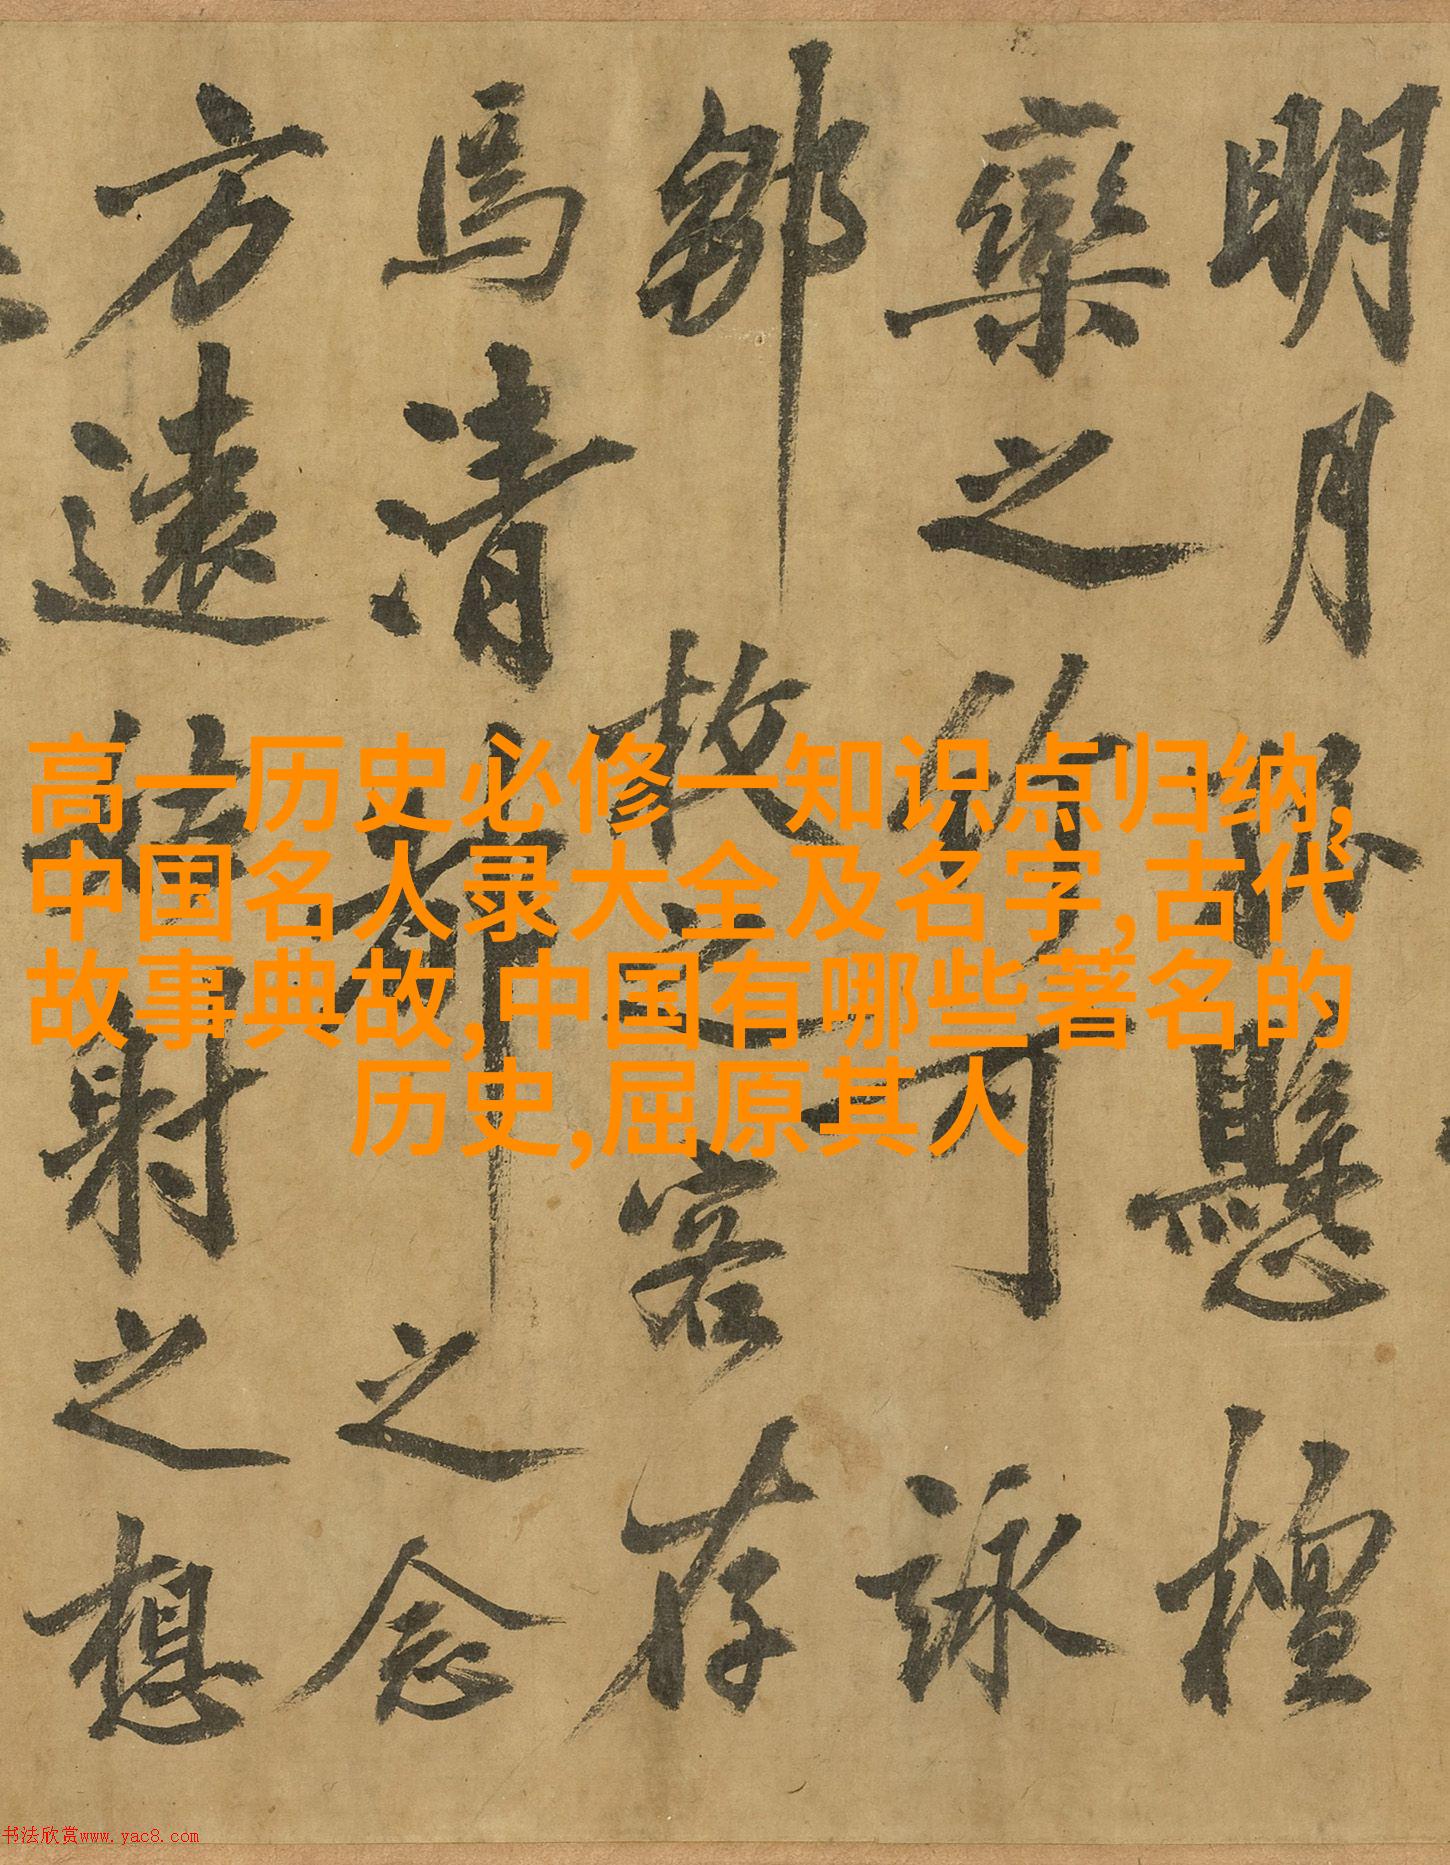 明月
懸檀
欒之
可詠
鄒
故之客存
馬清
之念
方遠
射之想
高一历史必修一知识点归纳,
中国名人录大全及名字,古代
故事典故,中国有哪些著名的
历史,屈原其人
书法欣赏www.yac8.com